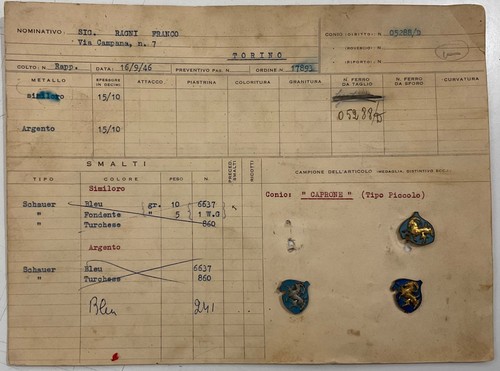 NOMINATIVO: SIG. RAGNI FRANCO
Via Campana, n. 7
TORINO
CONIO (DIRITTO) N. 05288/5
(ROVESCIO) N.
(RIPORTI) N.
COLTO: N. Rapp. DATA: 16/9/46 PREVENTIVO PAG. N. ORDINE N. 17893
METALLO SPESSORE IN DECIMI ATTACCO PIASTRINA COLORITURA GRANITURA N. FERRO DA TAGLIO N. FERRO DA SFORO CURVATURA
Similoro 15/10
05288/5
Argento 15/10
SMALTI
TIPO COLORE PESO N. PRECED. SMALTI RIDOTTI CAMPIONE DELL'ARTICOLO (MEDAGLIA, DISTINTIVO ECC.)
Similoro
Conio: " CAPRONE " (Tipo Piccolo)
Schauer Bleu gr. 10 6637
" Fondente " 5 1 W.G
" Turchese 860
Argento
Schauer Bleu 6637
" Turchese 860
Bleu 241